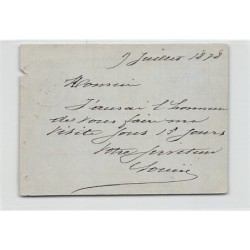 9 Juillet 1878
Monsieur
J'aurai l'honneur
de vous faire ma
visite sous 15 jours
Votre serviteur